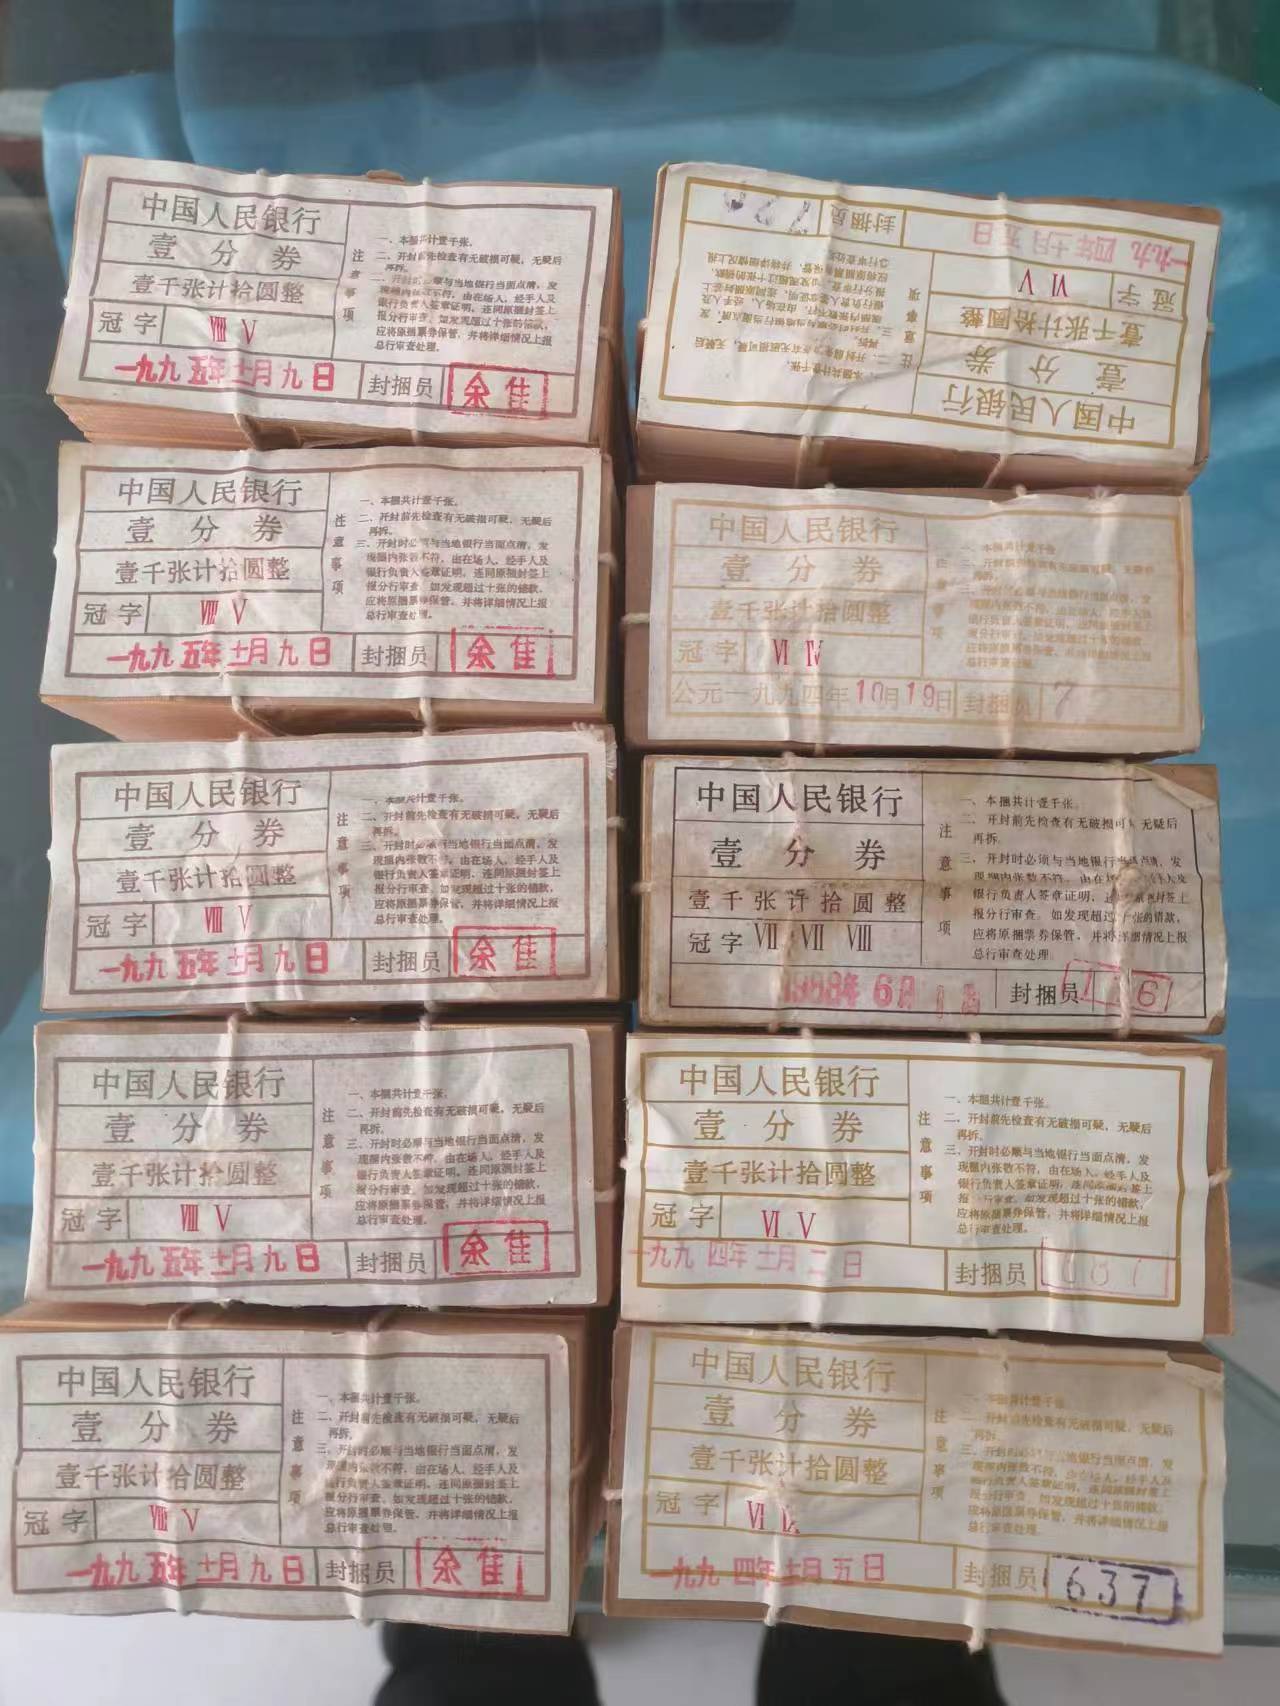 中国人民银行
壹分券
壹千张计拾圆整
冠字 Ⅷ Ⅴ
一九九五年十一月九日
封捆员 余佳
注意事项
一、本捆共计壹千张。
二、开封前先检查有无破损可疑，无疑后
再拆。
三、开封时必须与当地银行当面点清，发
现捆内张数不符，由在场人、经手人及
银行负责人签章证明，连同原捆封签上
报分行审查。如发现超过十张的错款，
应将原捆票券保管，并将详细情况上报
总行审查处理。
中国人民银行
壹分券
壹千张计拾圆整
冠字 Ⅷ Ⅴ
一九九五年十一月九日
封捆员 余佳
注意事项
一、本捆共计壹千张。
二、开封前先检查有无破损可疑，无疑后
再拆。
三、开封时必须与当地银行当面点清，发
现捆内张数不符，由在场人、经手人及
银行负责人签章证明，连同原捆封签上
报分行审查。如发现超过十张的错款，
应将原捆票券保管，并将详细情况上报
总行审查处理。
中国人民银行
壹分券
壹千张计拾圆整
冠字 Ⅷ Ⅴ
一九九五年十一月九日
封捆员 余佳
注意事项
一、本捆共计壹千张。
二、开封前先检查有无破损可疑，无疑后
再拆。
三、开封时必须与当地银行当面点清，发
现捆内张数不符，由在场人、经手人及
银行负责人签章证明，连同原捆封签上
报分行审查。如发现超过十张的错款，
应将原捆票券保管，并将详细情况上报
总行审查处理。
中国人民银行
壹分券
壹千张计拾圆整
冠字 Ⅷ Ⅴ
一九九五年十一月九日
封捆员 余佳
注意事项
一、本捆共计壹千张。
二、开封前先检查有无破损可疑，无疑后
再拆。
三、开封时必须与当地银行当面点清，发
现捆内张数不符，由在场人、经手人及
银行负责人签章证明，连同原捆封签上
报分行审查。如发现超过十张的错款，
应将原捆票券保管，并将详细情况上报
总行审查处理。
中国人民银行
壹分券
壹千张计拾圆整
冠字 Ⅷ Ⅴ
一九九五年十一月九日
封捆员 余佳
注意事项
一、本捆共计壹千张。
二、开封前先检查有无破损可疑，无疑后
再拆。
三、开封时必须与当地银行当面点清，发
现捆内张数不符，由在场人、经手人及
银行负责人签章证明，连同原捆封签上
报分行审查。如发现超过十张的错款，
应将原捆票券保管，并将详细情况上报
总行审查处理。
中国人民银行
壹分券
壹千张计拾圆整
冠字 Ⅵ Ⅴ
一九九四年十一月五日
封捆员
注意事项
一、本捆共计壹千张。
二、开封前先检查有无破损可疑，无疑后
再拆。
三、开封时必须与当地银行当面点清，发
现捆内张数不符，由在场人、经手人及
银行负责人签章证明，连同原捆封签上
报分行审查。如发现超过十张的错款，
应将原捆票券保管，并将详细情况上报
总行审查处理。
中国人民银行
壹分券
壹千张计拾圆整
冠字 Ⅵ Ⅳ
公元一九九四年10月19日
封捆员 7
注意事项
一、本捆共计壹千张
二、开封前先检查有无破损可疑，无疑后
再拆。
三、开封时必须与当地银行当面点清，发
现捆内张数不符，由在场人、经手人及
银行负责人签章证明，连同原捆封签上
报分行审查。如发现超过十张的错款，
应将原捆票券保管，并将详细情况上报
总行审查处理。
中国人民银行
壹分券
壹千张计拾圆整
冠字 Ⅶ Ⅶ Ⅷ
1988年6月
封捆员
注意事项
一、本捆共计壹千张。
二、开封前先检查有无破损可 无疑后
再拆。
三、开封时必须与当地银行当面点清，发
现捆内张数不符，由在场人、经手人及
银行负责人签章证明，连同原捆封签上
报分行审查。如发现超过十张的错款，
应将原捆票券保管，并将详细情况上报
总行审查处理
中国人民银行
壹分券
壹千张计拾圆整
冠字 Ⅵ Ⅴ
一九九四年十一月二日
封捆员 687
注意事项
一、本捆共计壹千张。
二、开封前先检查有无破损可疑，无疑后
再拆。
三、开封时必须与当地银行当面点清，发
现捆内张数不符，由在场人、经手人及
银行负责人签章证明，连同原捆封签上
报分行审查。如发现超过十张的错款，
应将原捆票券保管，并将详细情况上报
总行审查处理。
中国人民银行
壹分券
壹千张计拾圆整
冠字 Ⅵ Ⅸ
一九九四年十一月五日
封捆员 637
注意事项
一、本捆共计壹千张
二、开封前先检查有无破损可疑，无疑后
再拆。
三、开封时必须与当地银行当面点清，发
现捆内张数不符，由在场人、经手人及
银行负责人签章证明，连同原捆封签上
报分行审查。如发现超过十张的错款，
应将原捆票券保管，并将详细情况上报
总行审查处理。